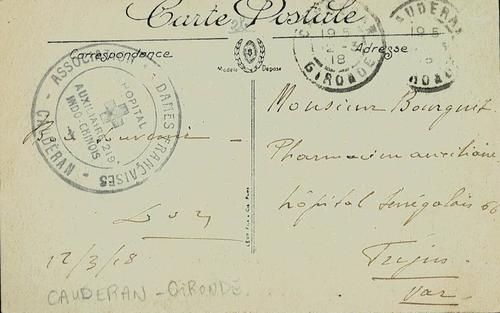 Carte Postale
Correspondance
Adresse
Modèle Déposé
CAUDERAN
19 5
12-3
18
GIRONDE
CAUDERAN
19 5
18
GIRONDE
ASSOCIATION - DAMES FRANÇAISES - CAUDÉRAN -
HÔPITAL
AUXILIAIRE 219
INDO-CHINOIS
Monsieur Bourguet
Pharmacien auxiliaire
hôpital Sénégalais 66
Fréjus
Var
Bon souvenir
12/3/18
CAUDERAN - GIRONDE.